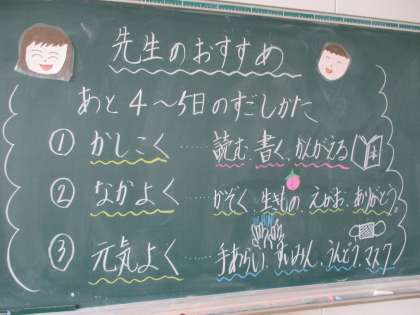 先生のおすすめ
あと4〜5日のすごしかた
① かしこく …… 読む、書く、かんがえる
② なかよく …… かぞく、生きもの、えがお、ありがとう。
③ 元気よく …… 手あらい、すいみん、うんどう、マスク